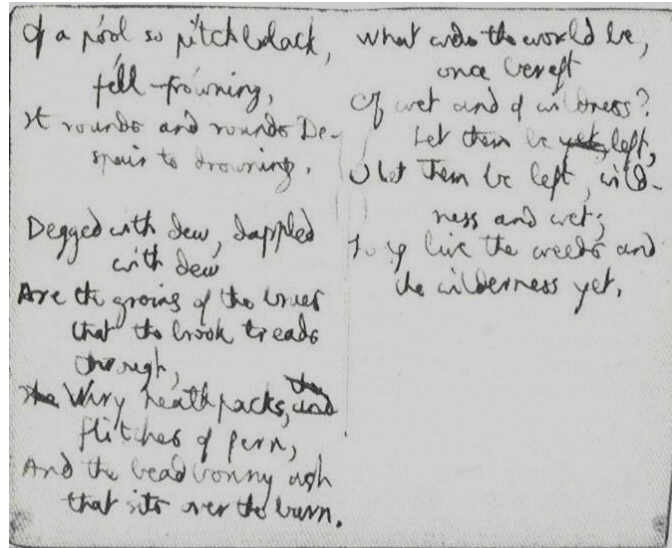 Of a póol so pítchbláck,
féll-frówning,
It rounds and rounds De-
spair to drowning.
Degged with dew, dappled
with dew
Are the groins of the braes
that the brook treads
through,
the Wiry heathpacks, the and
flitches of fern,
And the beadbonny ash
that sits over the burn.
What wd. the world be,
once bereft
Of wet and of wildness?
Let them be yet left,
O let them be left, wild-
ness and wet;
live the weeds and
the wilderness yet.